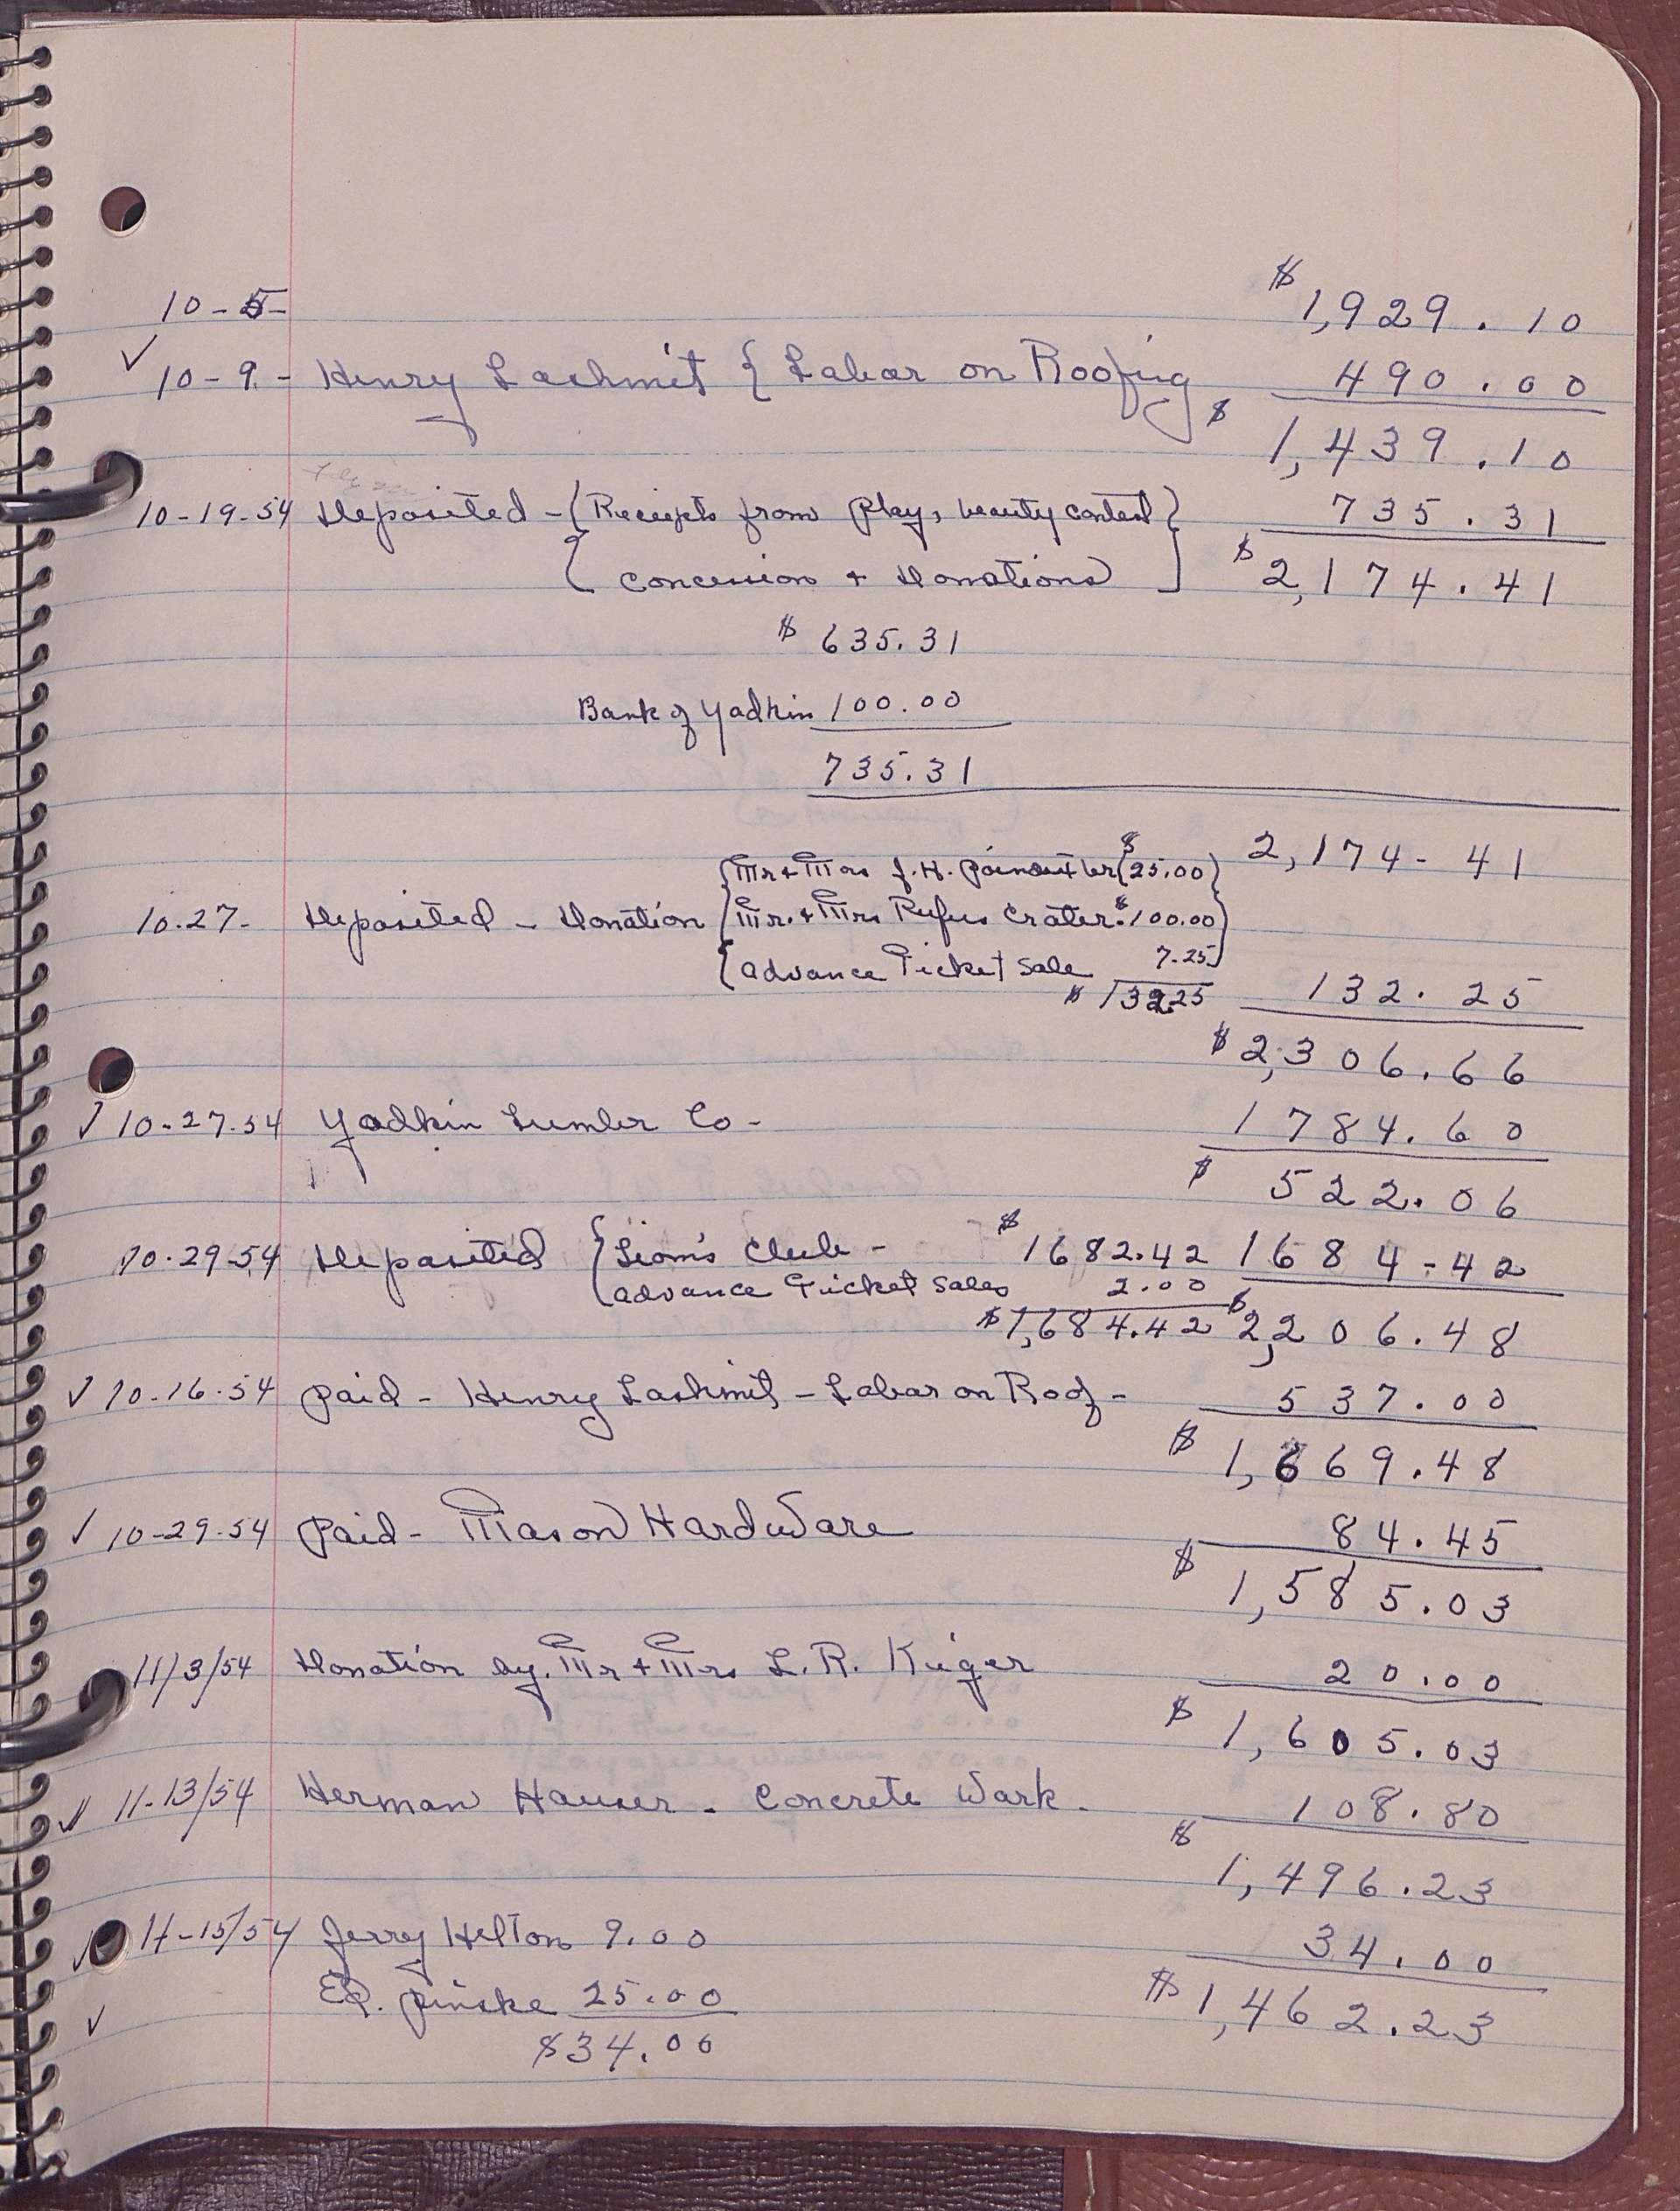 10-5- $1,929.10
✓ 10-9- Henry Lashmit { Labor on Roofing 490.00
$1,439.10
10-19-54 Deposited - { Receipts from Play, beauty contest } 735.31
{ Concession + Donations } $2,174.41
$ 635.31
Bank of Yadkin 100.00
735.31
2,174-41
{ Mr + Mrs J. H. Poindexter { $25.00 }
10-27- Deposited - Donation { Mr. + Mrs Rufus Crater. $100.00 }
{ advance Ticket Sale 7.25 }
$ 132.25 132.25
$2,306.66
✓ 10-27-54 Yadkin Lumber Co- 1784.60
$ 522.06
10-29-54 Deposited { Lion's Club - $1682.42 1684-42
{ advance Ticket Sales 2.00
$1,684.42 $2,206.48
✓ 10-16-54 Paid - Henry Lashmit - Labor on Roof - 537.00
$1,669.48
✓ 10-29-54 Paid - Mason Hardware 84.45
$1,585.03
11/3/54 Donation by. Mr + Mrs L. R. Kiger 20.00
$1,605.03
✓ 11-13/54 Herman Hauser - Concrete Work. 108.80
$1,496.23
✓ 11-15/54 Jerry Helton 9.00 34.00
✓ Ed. Pinske 25.00 $1,462.23
$34.00